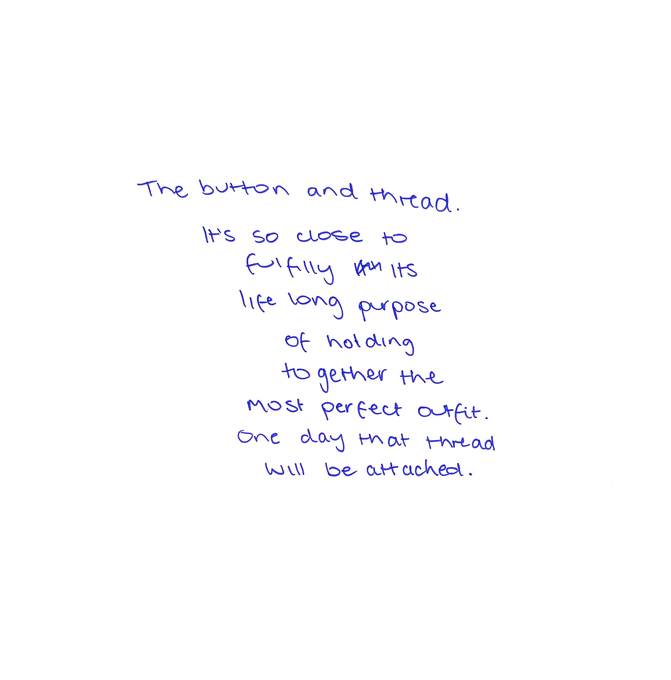 The button and thread.
It's so close to
fulfilly its
life long purpose
of holding
together the
most perfect outfit.
One day that thread
will be attached.